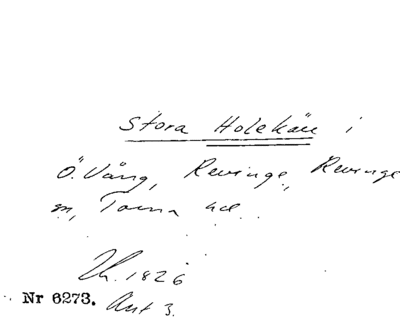 Stora Holekärr i
Ö. Vång, Revinge, Revinge
sn, Torna hd.
Lh. 1826
Nr 6273. Akt 3.